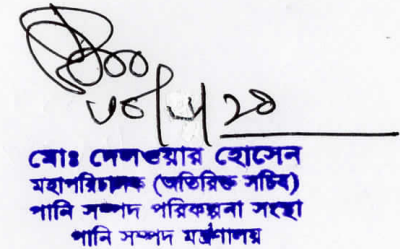 মোঃ দেলওয়ার হোসেন
মহাপরিচালক (অতিরিক্ত সচিব)
পানি সম্পদ পরিকল্পনা সংস্থা
পানি সম্পদ মন্ত্রণালয়